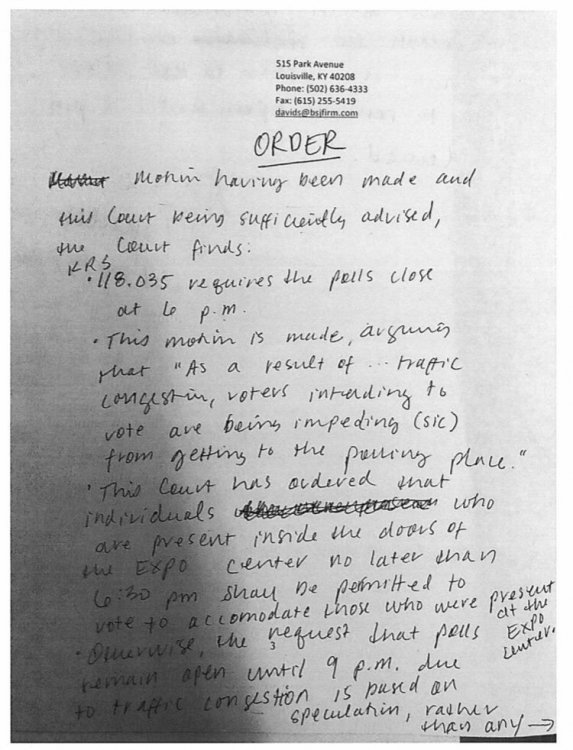 515 Park Avenue
Louisville, KY 40208
Phone: (502) 636-4333
Fax: (615) 255-5419
davids@bsjfirm.com
ORDER
Motion having been made and
this Court being sufficiently advised,
the Court finds:
• KRS 118.035 requires the polls close
at 6 p.m.
• This motion is made, arguing
that "As a result of ... traffic
congestion, voters intending to
vote are being impeding (sic)
from getting to the polling place."
• This Court has ordered that
individuals who
are present inside the doors of
the EXPO Center no later than
6:30 pm shall be permitted to
vote to accomodate those who were present at the EXPO Center.
• Otherwise, the request that polls
remain open until 9 p.m. due
to traffic congestion is based on
speculation, rather
than any →
3